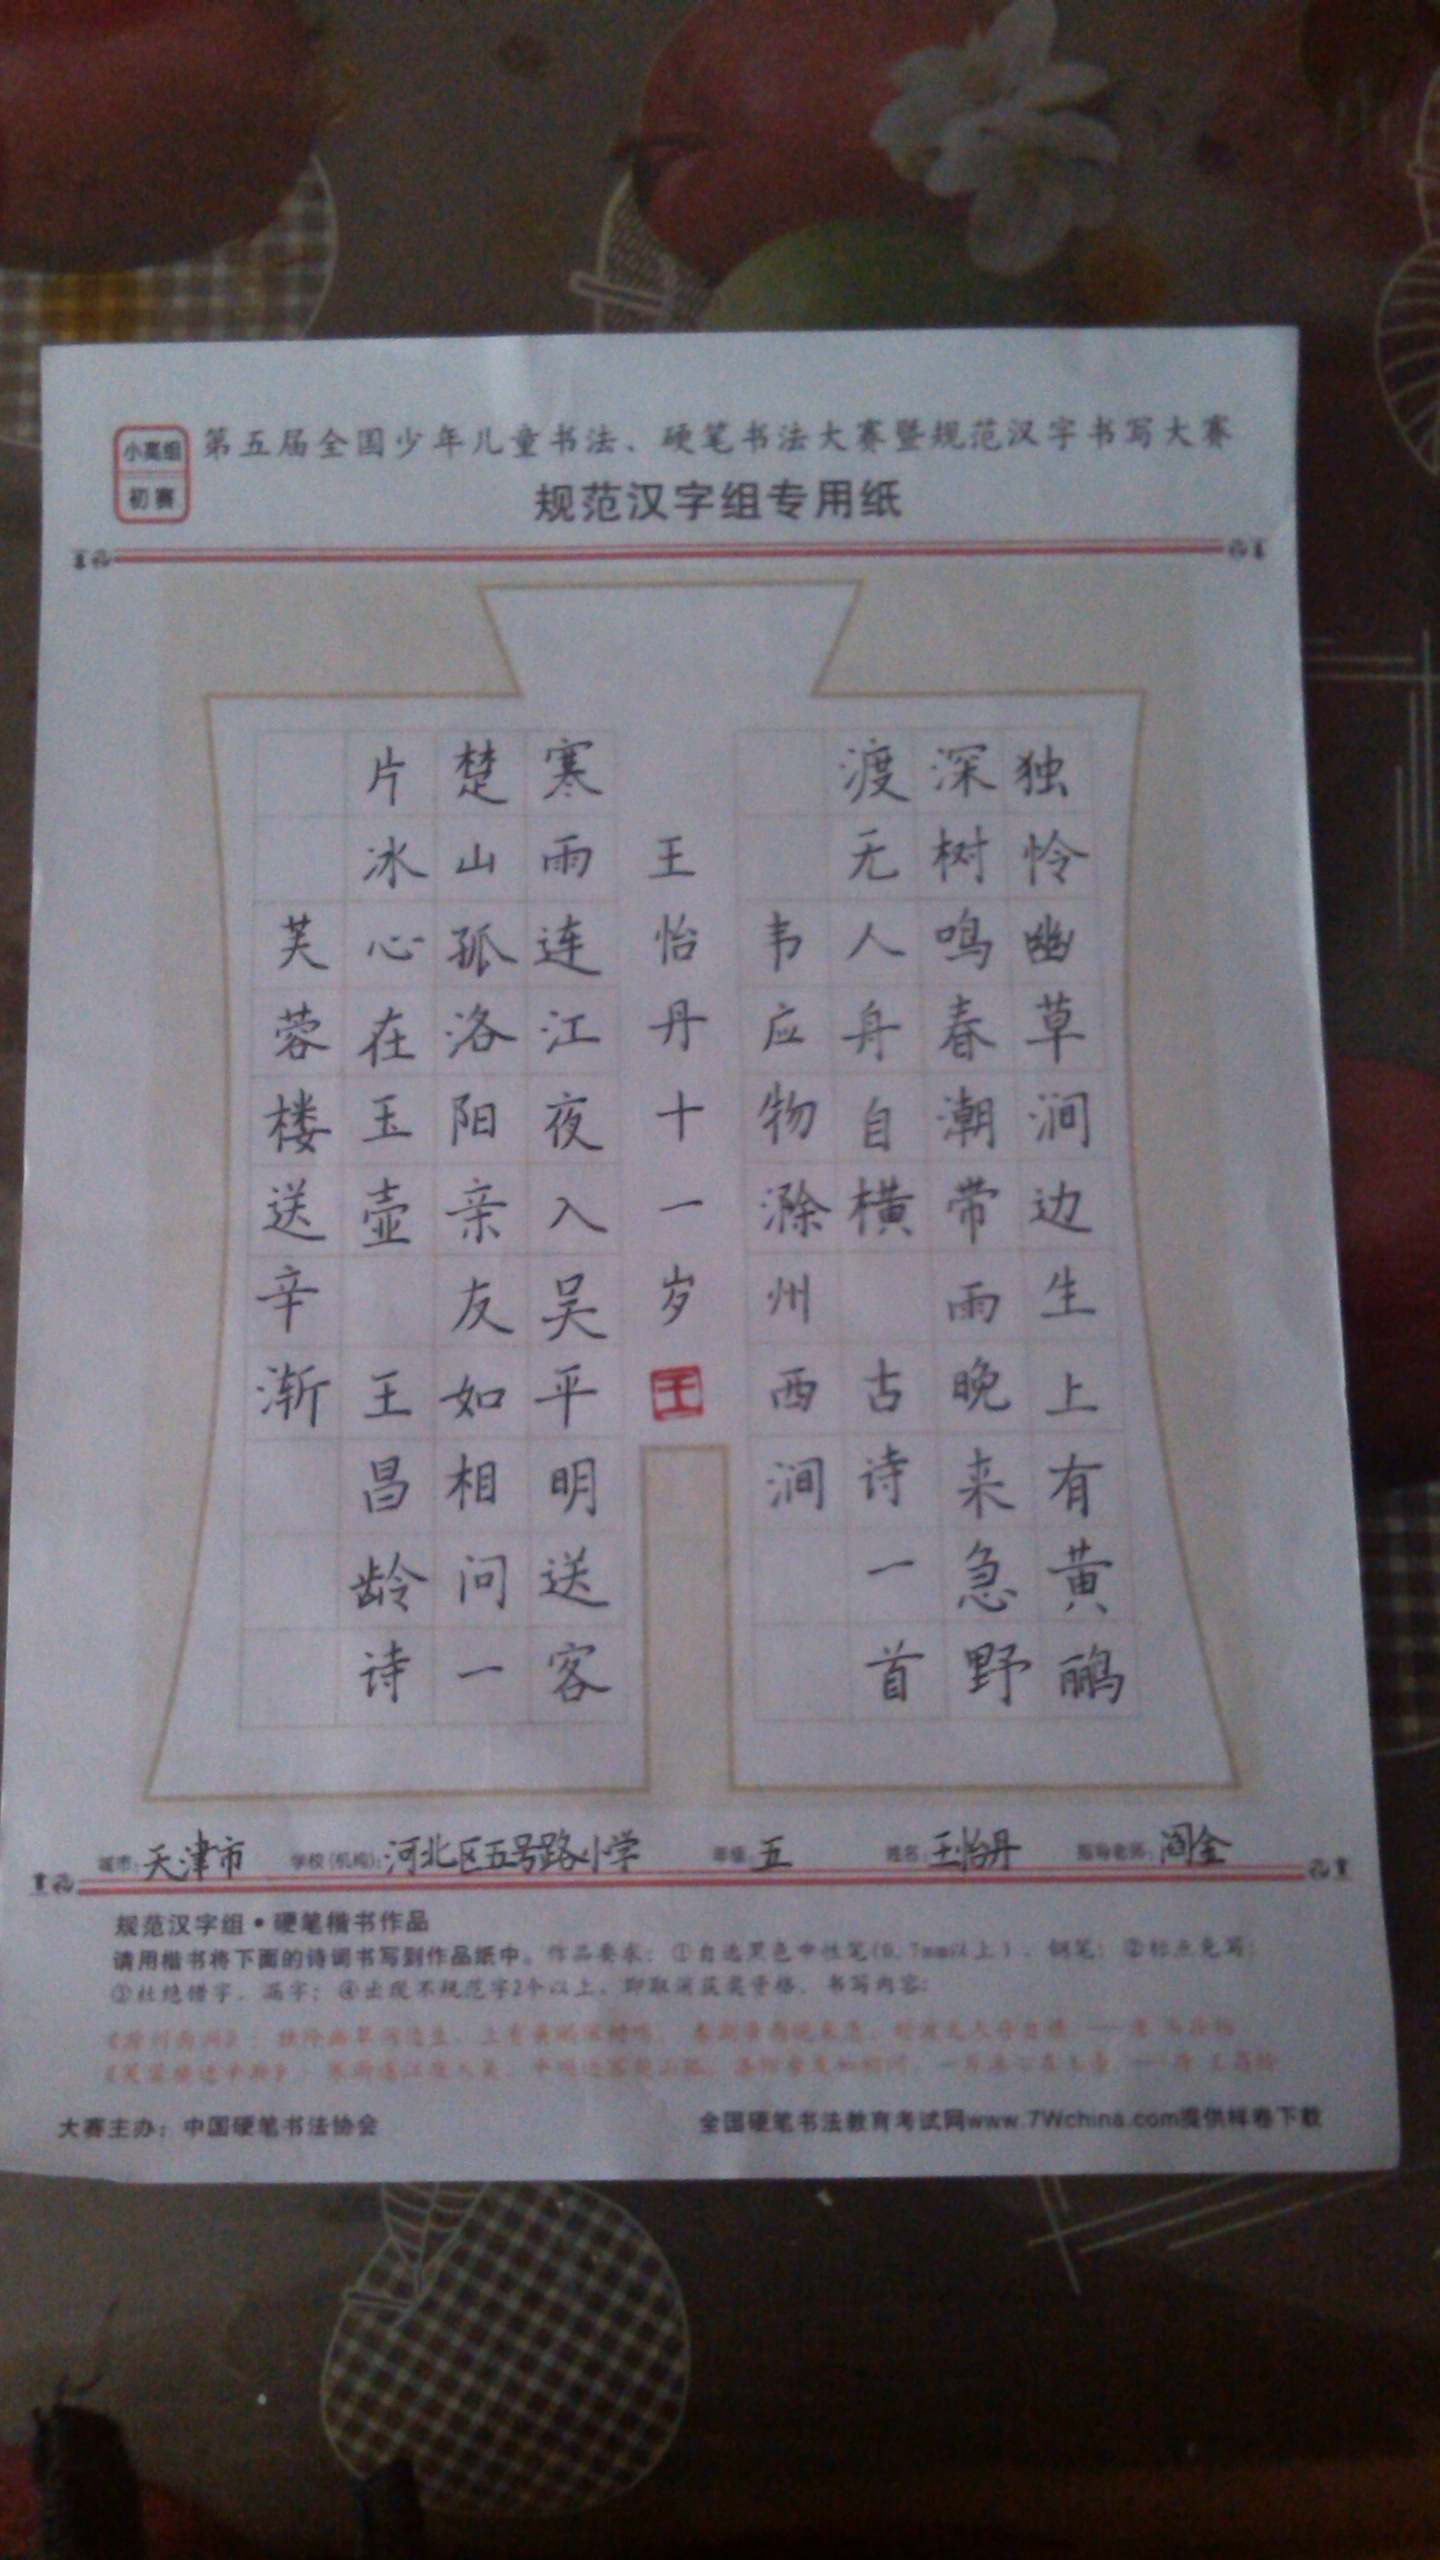 小高组
初赛
第五届全国少年儿童书法、硬笔书法大赛暨规范汉字书写大赛
规范汉字组专用纸
独怜幽草涧边生上有黄鹂
深树鸣春潮带雨晚来急野
渡无人舟自横 古诗一首
韦应物滁州西涧
王怡丹十一岁
王
寒雨连江夜入吴平明送客
楚山孤洛阳亲友如相问一
片冰心在玉壶 王昌龄诗
芙蓉楼送辛渐
城市：天津市 学校(机构)：河北区五号路小学 年级：五 姓名：王怡丹 指导老师：阎金
规范汉字组•硬笔楷书作品
请用楷书将下面的诗词书写到作品纸中。作品要求：①自选黑色中性笔(0.7mm以上)、钢笔；②标点免写；
③杜绝错字、漏字；④出现不规范字2个以上，即取消获奖资格。书写内容：
大赛主办：中国硬笔书法协会
全国硬笔书法教育考试网www.7Wchina.com提供样卷下载